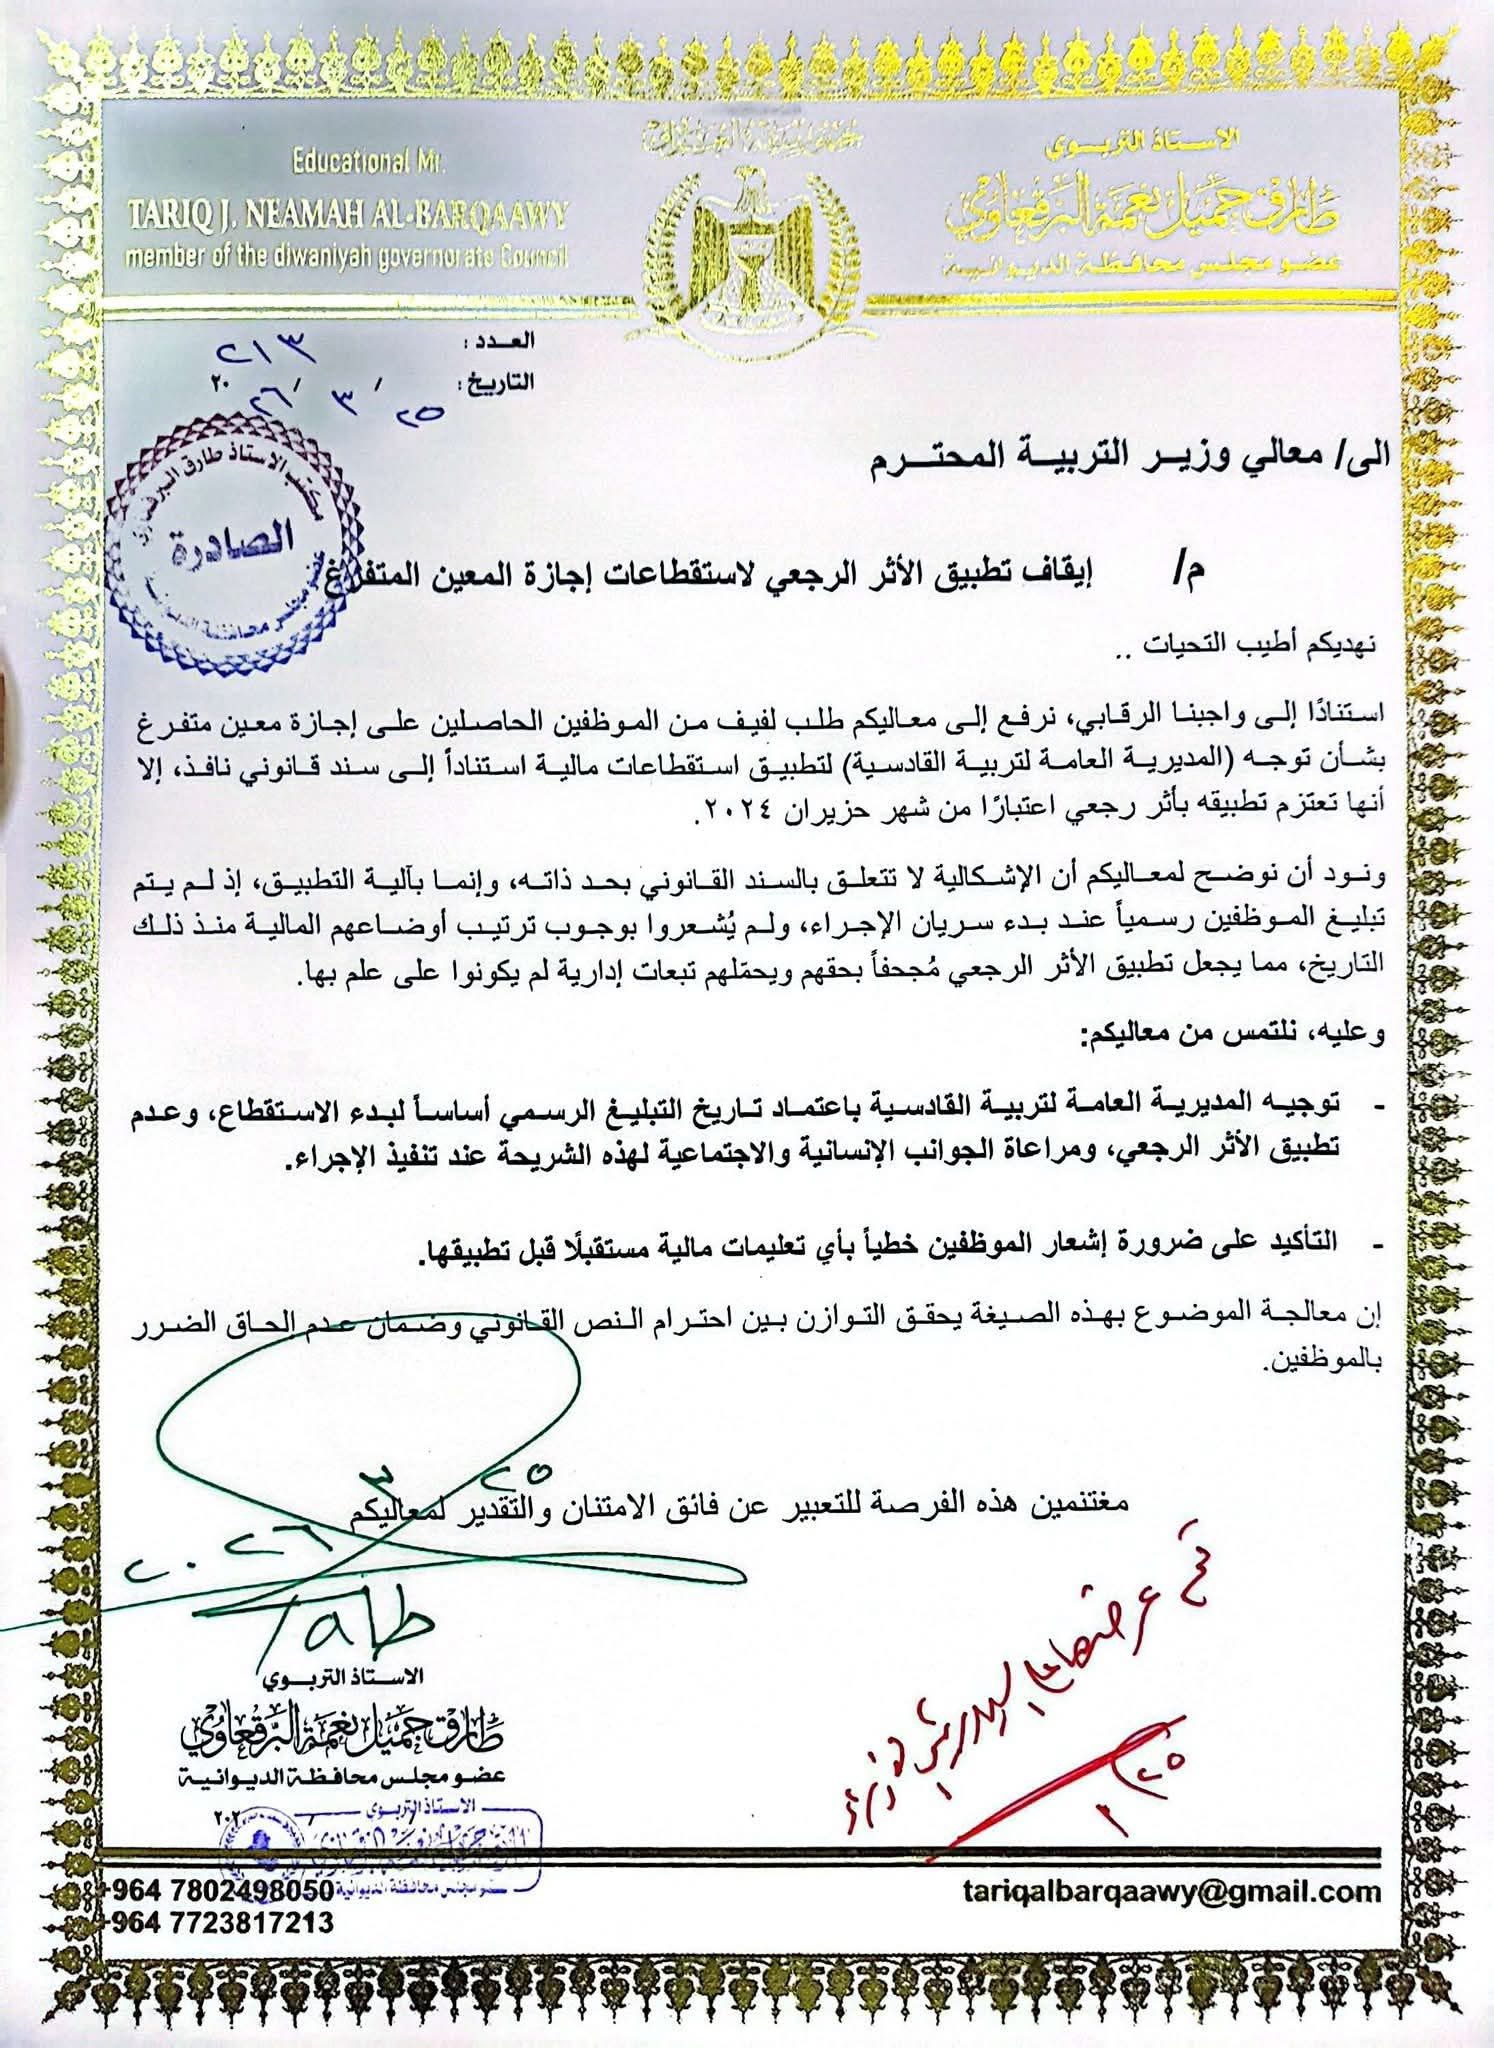 Educational Mr.
TARIQ J. NEAMAH AL-BARQAAWY
member of the diwaniyah governorate Council
الاستاذ التربوي
طارق جميل نعمة البرقعاوي
عضو مجلس محافظة الديوانية
العدد : ٢١٣
التاريخ : ٢٥ / ٣ / ٢٠٢٦
مكتب الاستاذ طارق البرقعاوي
الصادرة
عضو مجلس محافظة الديوانية
الى/ معالي وزير التربية المحترم
م/ إيقاف تطبيق الأثر الرجعي لاستقطاعات إجازة المعين المتفرغ
نهديكم أطيب التحيات ..
استنادًا إلى واجبنا الرقابي، نرفع إلى معاليكم طلب لفيف من الموظفين الحاصلين على إجازة معين متفرغ
بشأن توجه (المديرية العامة لتربية القادسية) لتطبيق استقطاعات مالية استناداً إلى سند قانوني نافذ، إلا
أنها تعتزم تطبيقه بأثر رجعي اعتبارًا من شهر حزيران ٢٠٢٤.
ونود أن نوضح لمعاليكم أن الإشكالية لا تتعلق بالسند القانوني بحد ذاته، وإنما بآلية التطبيق، إذ لم يتم
تبليغ الموظفين رسمياً عند بدء سريان الإجراء، ولم يُشعروا بوجوب ترتيب أوضاعهم المالية منذ ذلك
التاريخ، مما يجعل تطبيق الأثر الرجعي مُجحفاً بحقهم ويحمّلهم تبعات إدارية لم يكونوا على علم بها.
وعليه، نلتمس من معاليكم:
- توجيه المديرية العامة لتربية القادسية باعتماد تاريخ التبليغ الرسمي أساساً لبدء الاستقطاع، وعدم
تطبيق الأثر الرجعي، ومراعاة الجوانب الإنسانية والاجتماعية لهذه الشريحة عند تنفيذ الإجراء.
- التأكيد على ضرورة إشعار الموظفين خطياً بأي تعليمات مالية مستقبلًا قبل تطبيقها.
إن معالجة الموضوع بهذه الصيغة يحقق التوازن بين احترام النص القانوني وضمان عدم إلحاق الضرر
بالموظفين.
مغتنمين هذه الفرصة للتعبير عن فائق الامتنان والتقدير لمعاليكم
٢٥
٣
٢٠٢٦
الاستاذ التربوي
طارق جميل نعمة البرقعاوي
عضو مجلس محافظة الديوانية
الاستاذ التربوي
عضو مجلس محافظة الديوانية
تم
٢٥
+964 7802498050
+964 7723817213
tariqalbarqaawy@gmail.com